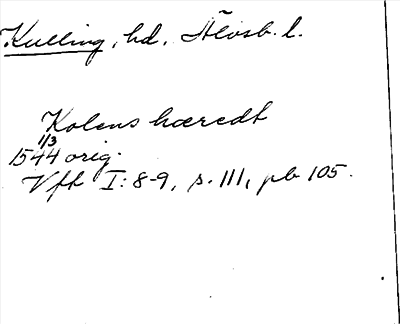 Kulling, hd, Älvsb. l.
Kolens hæredt
1/3
1544 orig.
Vft I: 8-9, s. 111, pb 105.